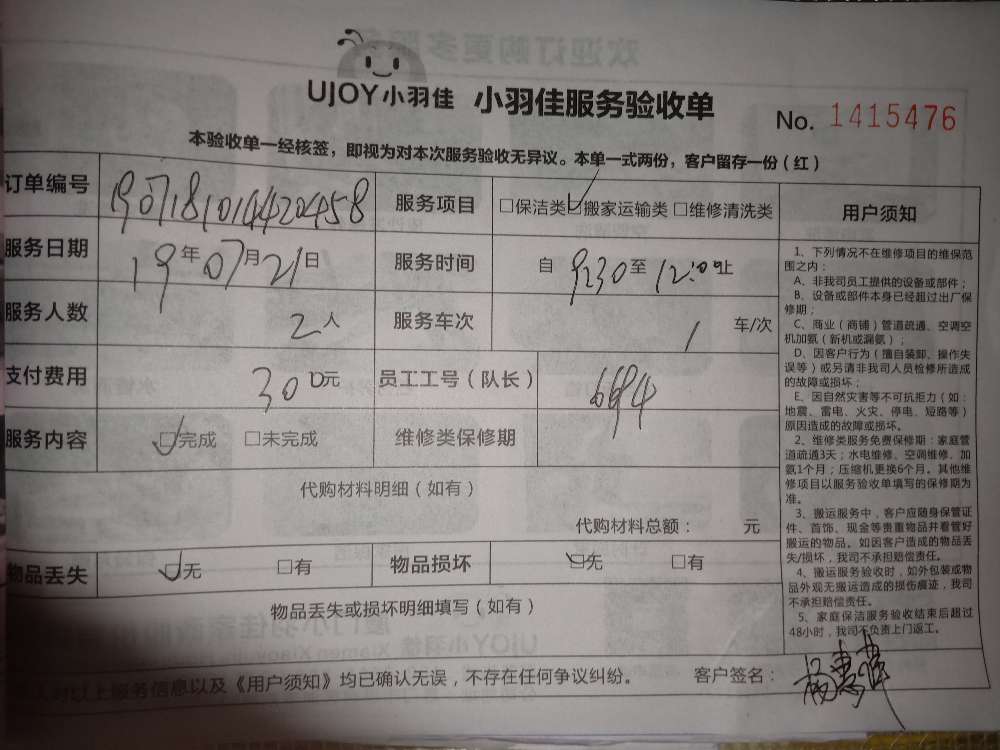 UJOY小羽佳 小羽佳服务验收单 No. 1415476
本验收单一经核签，即视为对本次服务验收无异议。本单一式两份，客户留存一份（红）
订单编号 1907181014420458 服务项目 □保洁类 ☑搬家运输类 □维修清洗类
服务日期 19年07月21日 服务时间 自9:30至12:00止
服务人数 2人 服务车次 1 车/次
支付费用 300元 员工工号（队长） 6694
服务内容 ☑完成 □未完成 维修类保修期
代购材料明细（如有）
代购材料总额： 元
物品丢失 ☑无 □有 物品损坏 ☑无 □有
物品丢失或损坏明细填写（如有）
对以上服务信息以及《用户须知》均已确认无误，不存在任何争议纠纷。 客户签名：
用户须知
1、下列情况不在维修项目的维保范
围之内：
A、非我司员工提供的设备或部件；
B、设备或部件本身已经超过出厂保
修期；
C、商业（商铺）管道疏通、空调空
机加氨（新机或漏氨）；
D、因客户行为（擅自装卸、操作失
误等）或另请非我司人员检修所造成
的故障或损坏；
E、因自然灾害等不可抗拒力（如：
地震、雷电、火灾、停电、短路等）
原因造成的故障或损坏。
2、维修类服务免费保修期：家庭管
道疏通3天；水电维修、空调维修、加
氨1个月；压缩机更换6个月。其他维
修项目以服务验收单填写的保修期为
准。
3、搬运服务中，客户应随身保管证
件、首饰、现金等贵重物品并看管好
搬运的物品。如因客户造成的物品丢
失/损坏，我司不承担赔偿责任。
4、搬运服务验收时，如外包装或物
品外观无搬运造成的损伤痕迹，我司
不承担赔偿责任。
5、家庭保洁服务验收结束后超过
48小时，我司不负责上门返工。